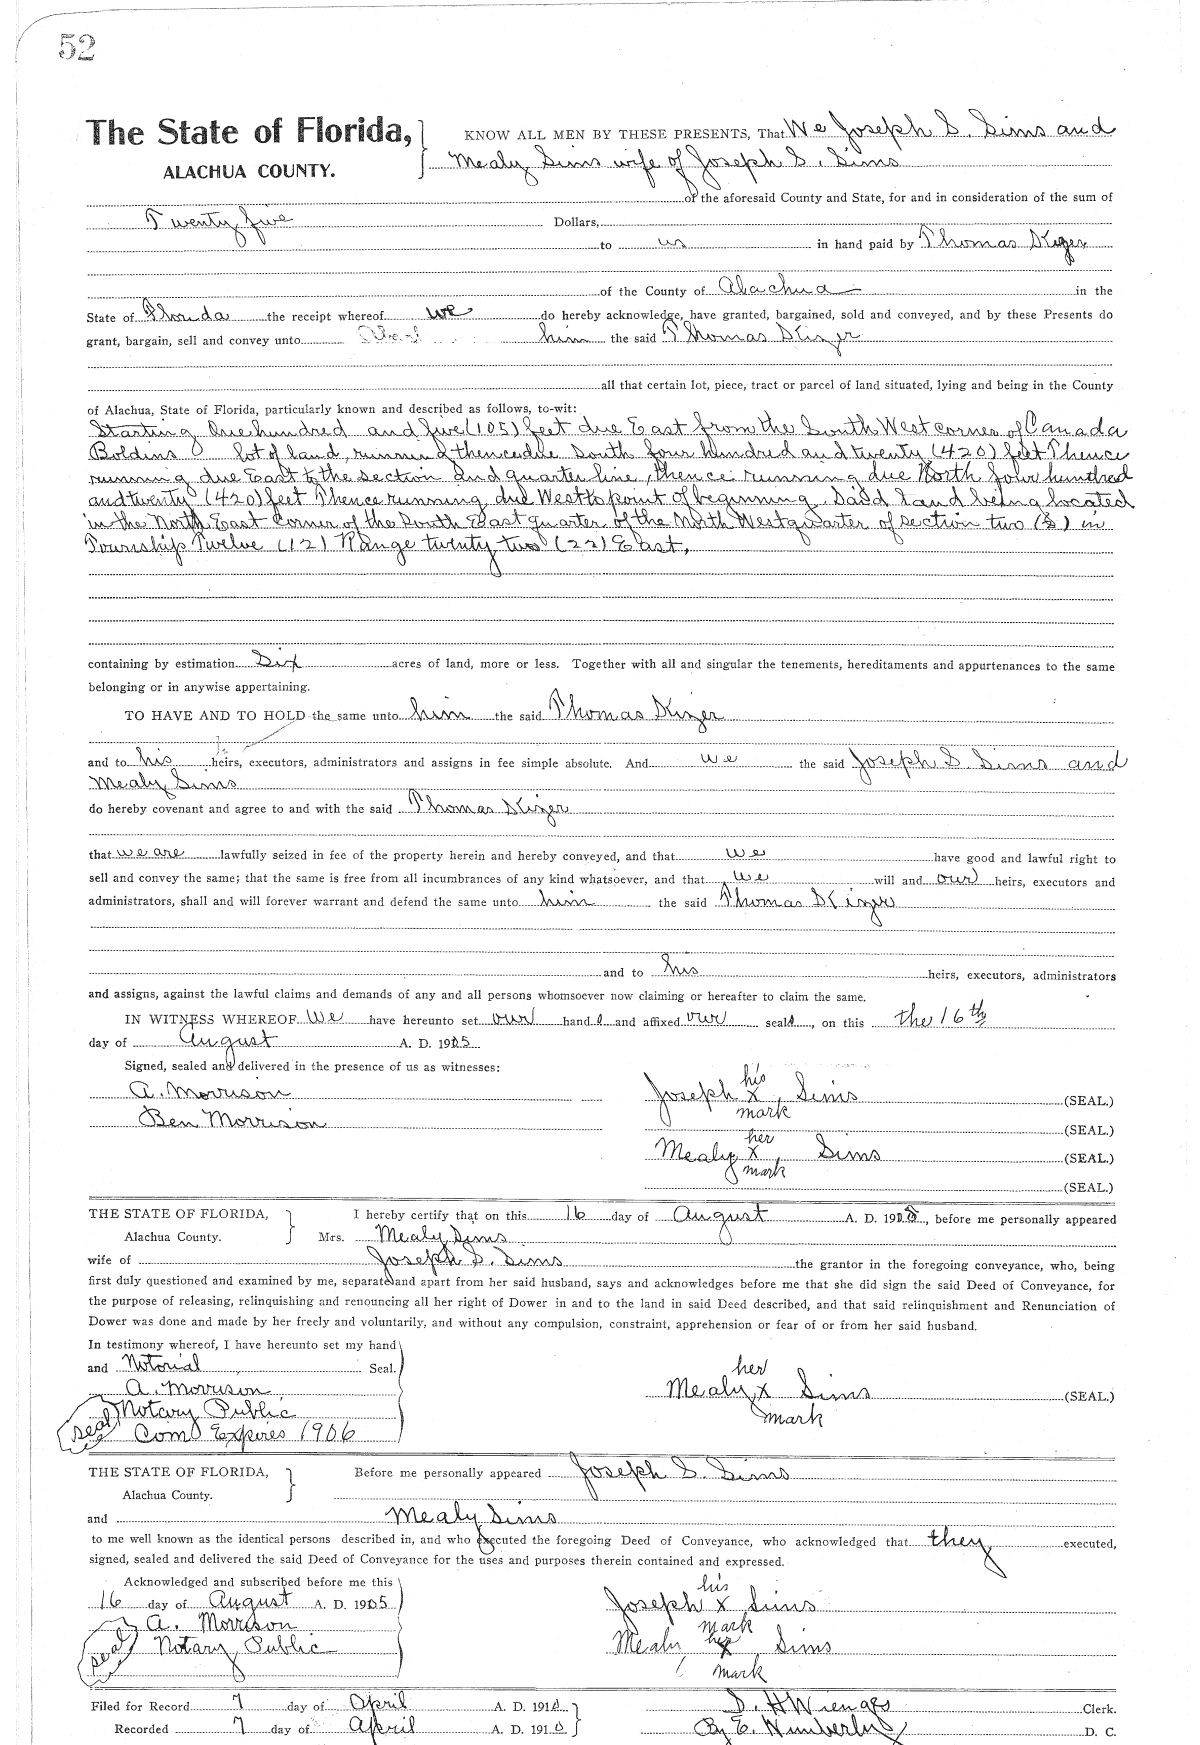 52
The State of Florida,
ALACHUA COUNTY.
KNOW ALL MEN BY THESE PRESENTS, That We Joseph S. Sims and
Mealy Sims wife of Joseph S. Sims
of the aforesaid County and State, for and in consideration of the sum of
Twenty five Dollars,
to us in hand paid by Thomas Kizer
of the County of Alachua in the
State of Florida the receipt whereof we do hereby acknowledge, have granted, bargained, sold and conveyed, and by these Presents do
grant, bargain, sell and convey unto him the said Thomas Kizer
all that certain lot, piece, tract or parcel of land situated, lying and being in the County
of Alachua, State of Florida, particularly known and described as follows, to-wit:
Starting One hundred and five (105) feet due East from the South West corner of Canada
Boldins lot of land, running thence due South four hundred and twenty (420) feet Thence
running due East to the section and quarter line, thence running due North four hundred
and twenty (420) feet Thence running due West to point of beginning. Said land being located
in the North East Corner of the South East quarter of the North West quarter of section two (2) in
Township Twelve (12) Range twenty two (22) East,
containing by estimation Six acres of land, more or less. Together with all and singular the tenements, hereditaments and appurtenances to the same
belonging or in anywise appertaining.
TO HAVE AND TO HOLD the same unto him the said Thomas Kizer
and to his heirs, executors, administrators and assigns in fee simple absolute. And we the said Joseph S. Sims and
Mealy Sims
do hereby covenant and agree to and with the said Thomas Kizer
that we are lawfully seized in fee of the property herein and hereby conveyed, and that we have good and lawful right to
sell and convey the same; that the same is free from all incumbrances of any kind whatsoever, and that we will and our heirs, executors and
administrators, shall and will forever warrant and defend the same unto him the said Thomas Kizer
and to his heirs, executors, administrators
and assigns, against the lawful claims and demands of any and all persons whomsoever now claiming or hereafter to claim the same.
IN WITNESS WHEREOF We have hereunto set our hands and affixed our seals, on this the 16th
day of August A. D. 1905
Signed, sealed and delivered in the presence of us as witnesses:
A. Morrison
Ben Morrison
his
Joseph x Sims (SEAL.)
mark
(SEAL.)
her
Mealy x Sims (SEAL.)
mark
(SEAL.)
THE STATE OF FLORIDA,
Alachua County.
I hereby certify that on this 16 day of August A. D. 1905, before me personally appeared
Mrs. Mealy Sims
wife of Joseph S. Sims the grantor in the foregoing conveyance, who, being
first duly questioned and examined by me, separate and apart from her said husband, says and acknowledges before me that she did sign the said Deed of Conveyance, for
the purpose of releasing, relinquishing and renouncing all her right of Dower in and to the land in said Deed described, and that said relinquishment and Renunciation of
Dower was done and made by her freely and voluntarily, and without any compulsion, constraint, apprehension or fear of or from her said husband.
In testimony whereof, I have hereunto set my hand
and Notorial Seal.
A. Morrison,
Notary Public
seal Com Expires 1906
her
Mealy x Sims (SEAL.)
mark
THE STATE OF FLORIDA,
Alachua County.
Before me personally appeared Joseph S. Sims
and Mealy Sims
to me well known as the identical persons described in, and who executed the foregoing Deed of Conveyance, who acknowledged that they executed,
signed, sealed and delivered the said Deed of Conveyance for the uses and purposes therein contained and expressed.
Acknowledged and subscribed before me this
16 day of August A. D. 1905
A. Morrison
seal Notary Public
his
Joseph x Sims
mark
her
Mealy x Sims
mark
Filed for Record 7 day of April A. D. 1910
Recorded 7 day of April A. D. 1910
S. H Wienges Clerk.
By E. Wimberly D. C.